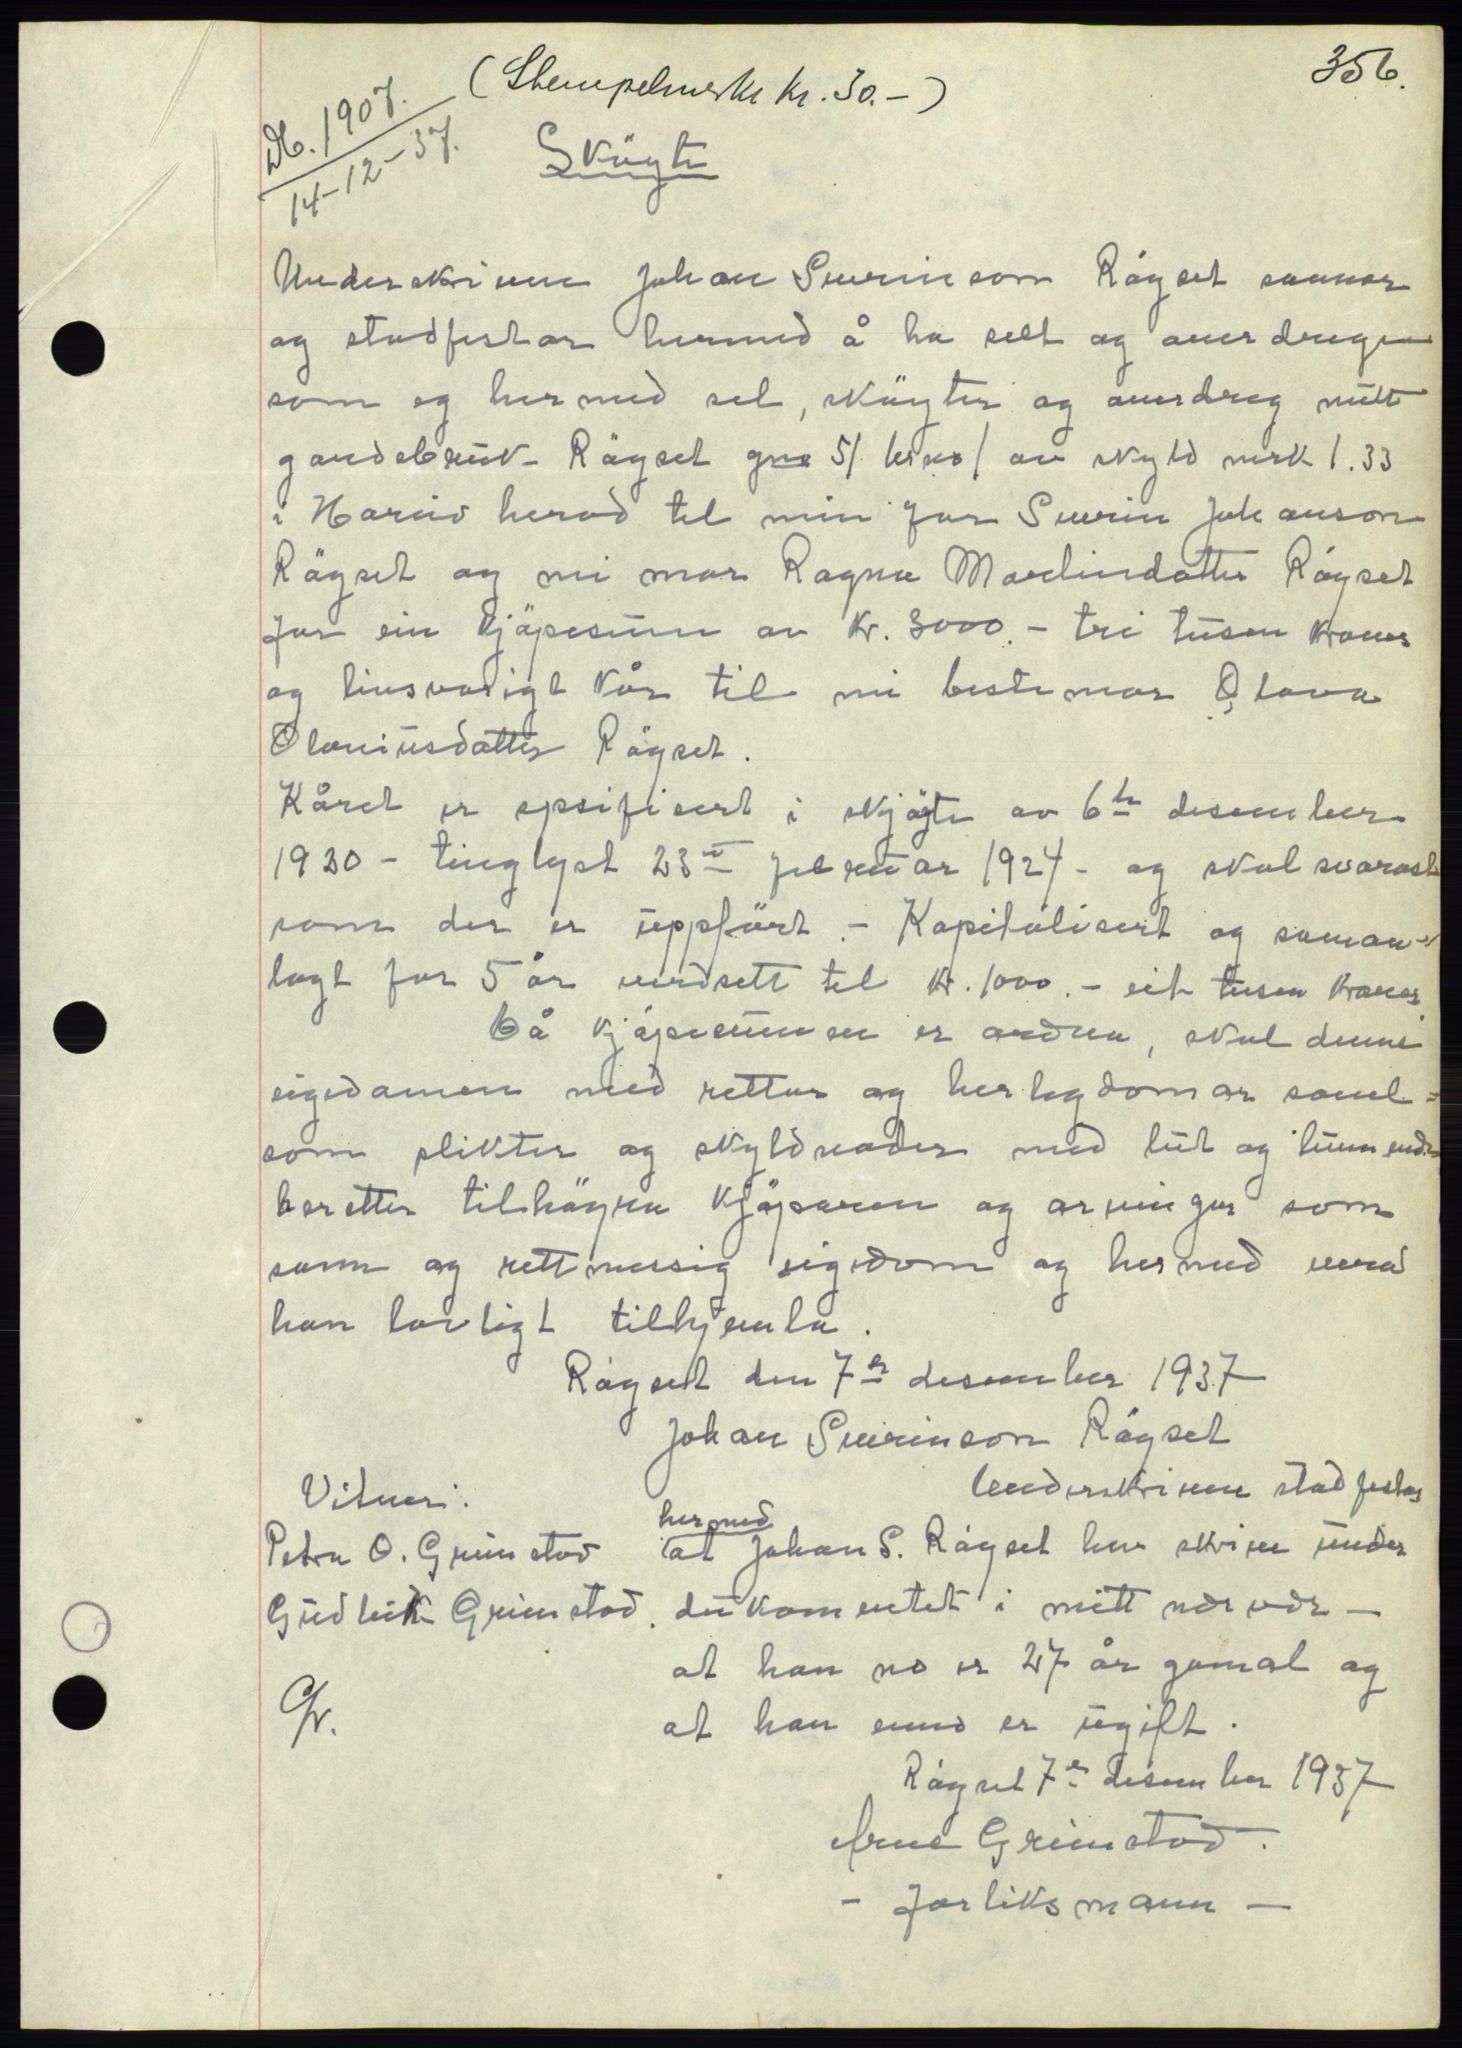 356.
(Stempelmerke kr. 30.-)
Db. 1907.
14-12-37.
Sköyte
Underskrivne Johan Severinson Röyset sannar
og stadfestar hermed å ha selt og overdrege
som eg hermed sel, sköyter og overdreg mitt
gardsbruk - Röyset gno 5/ brno / av skyld merk 1.33
i Hareid herad til min far Severin Johanson
Röyset og mi mor Ragna Martinsdotter Röyset
for ein kjöpesum av kr. 3000.- tri tusen kroner
og livsvarigt kår til mi bestemor Olava
Olaviusdotter Röyset.
Kåret er spsifisert i skjöyte av 6te desember
1920 - tinglyst 23de februar 1924 - og skal svarast
som der er uppfört. - Kapitalisert og saman-
lagt for 5 år verdsett til kr. 1000.- eit tusen kroner
Då kjöpesummen er ordna, skal denne
eigedomen med rettar og herlegdomar soml=
som plikter og skyldnader med lut og lunnende
beretter tilhöyra kjöparen og arvingar som
sann og rettmessig eigedom og hermed verd
han lovligt tilhjemla.
Röyset den 7de desember 1937
Johan Severinson Röyset
Vitner:
Petra O. Grimstad
Gudleik Grimstad.
Underskrivne stadfestar
hermed
at Johan S. Röyset hev skrive under
dukomentet i mitt nærvær -
at han no er 27 år gamal og
at han enno er ugift.
Röyset 7de desember 1937
Arne Grimstad.
- forliksmann -
Gr.